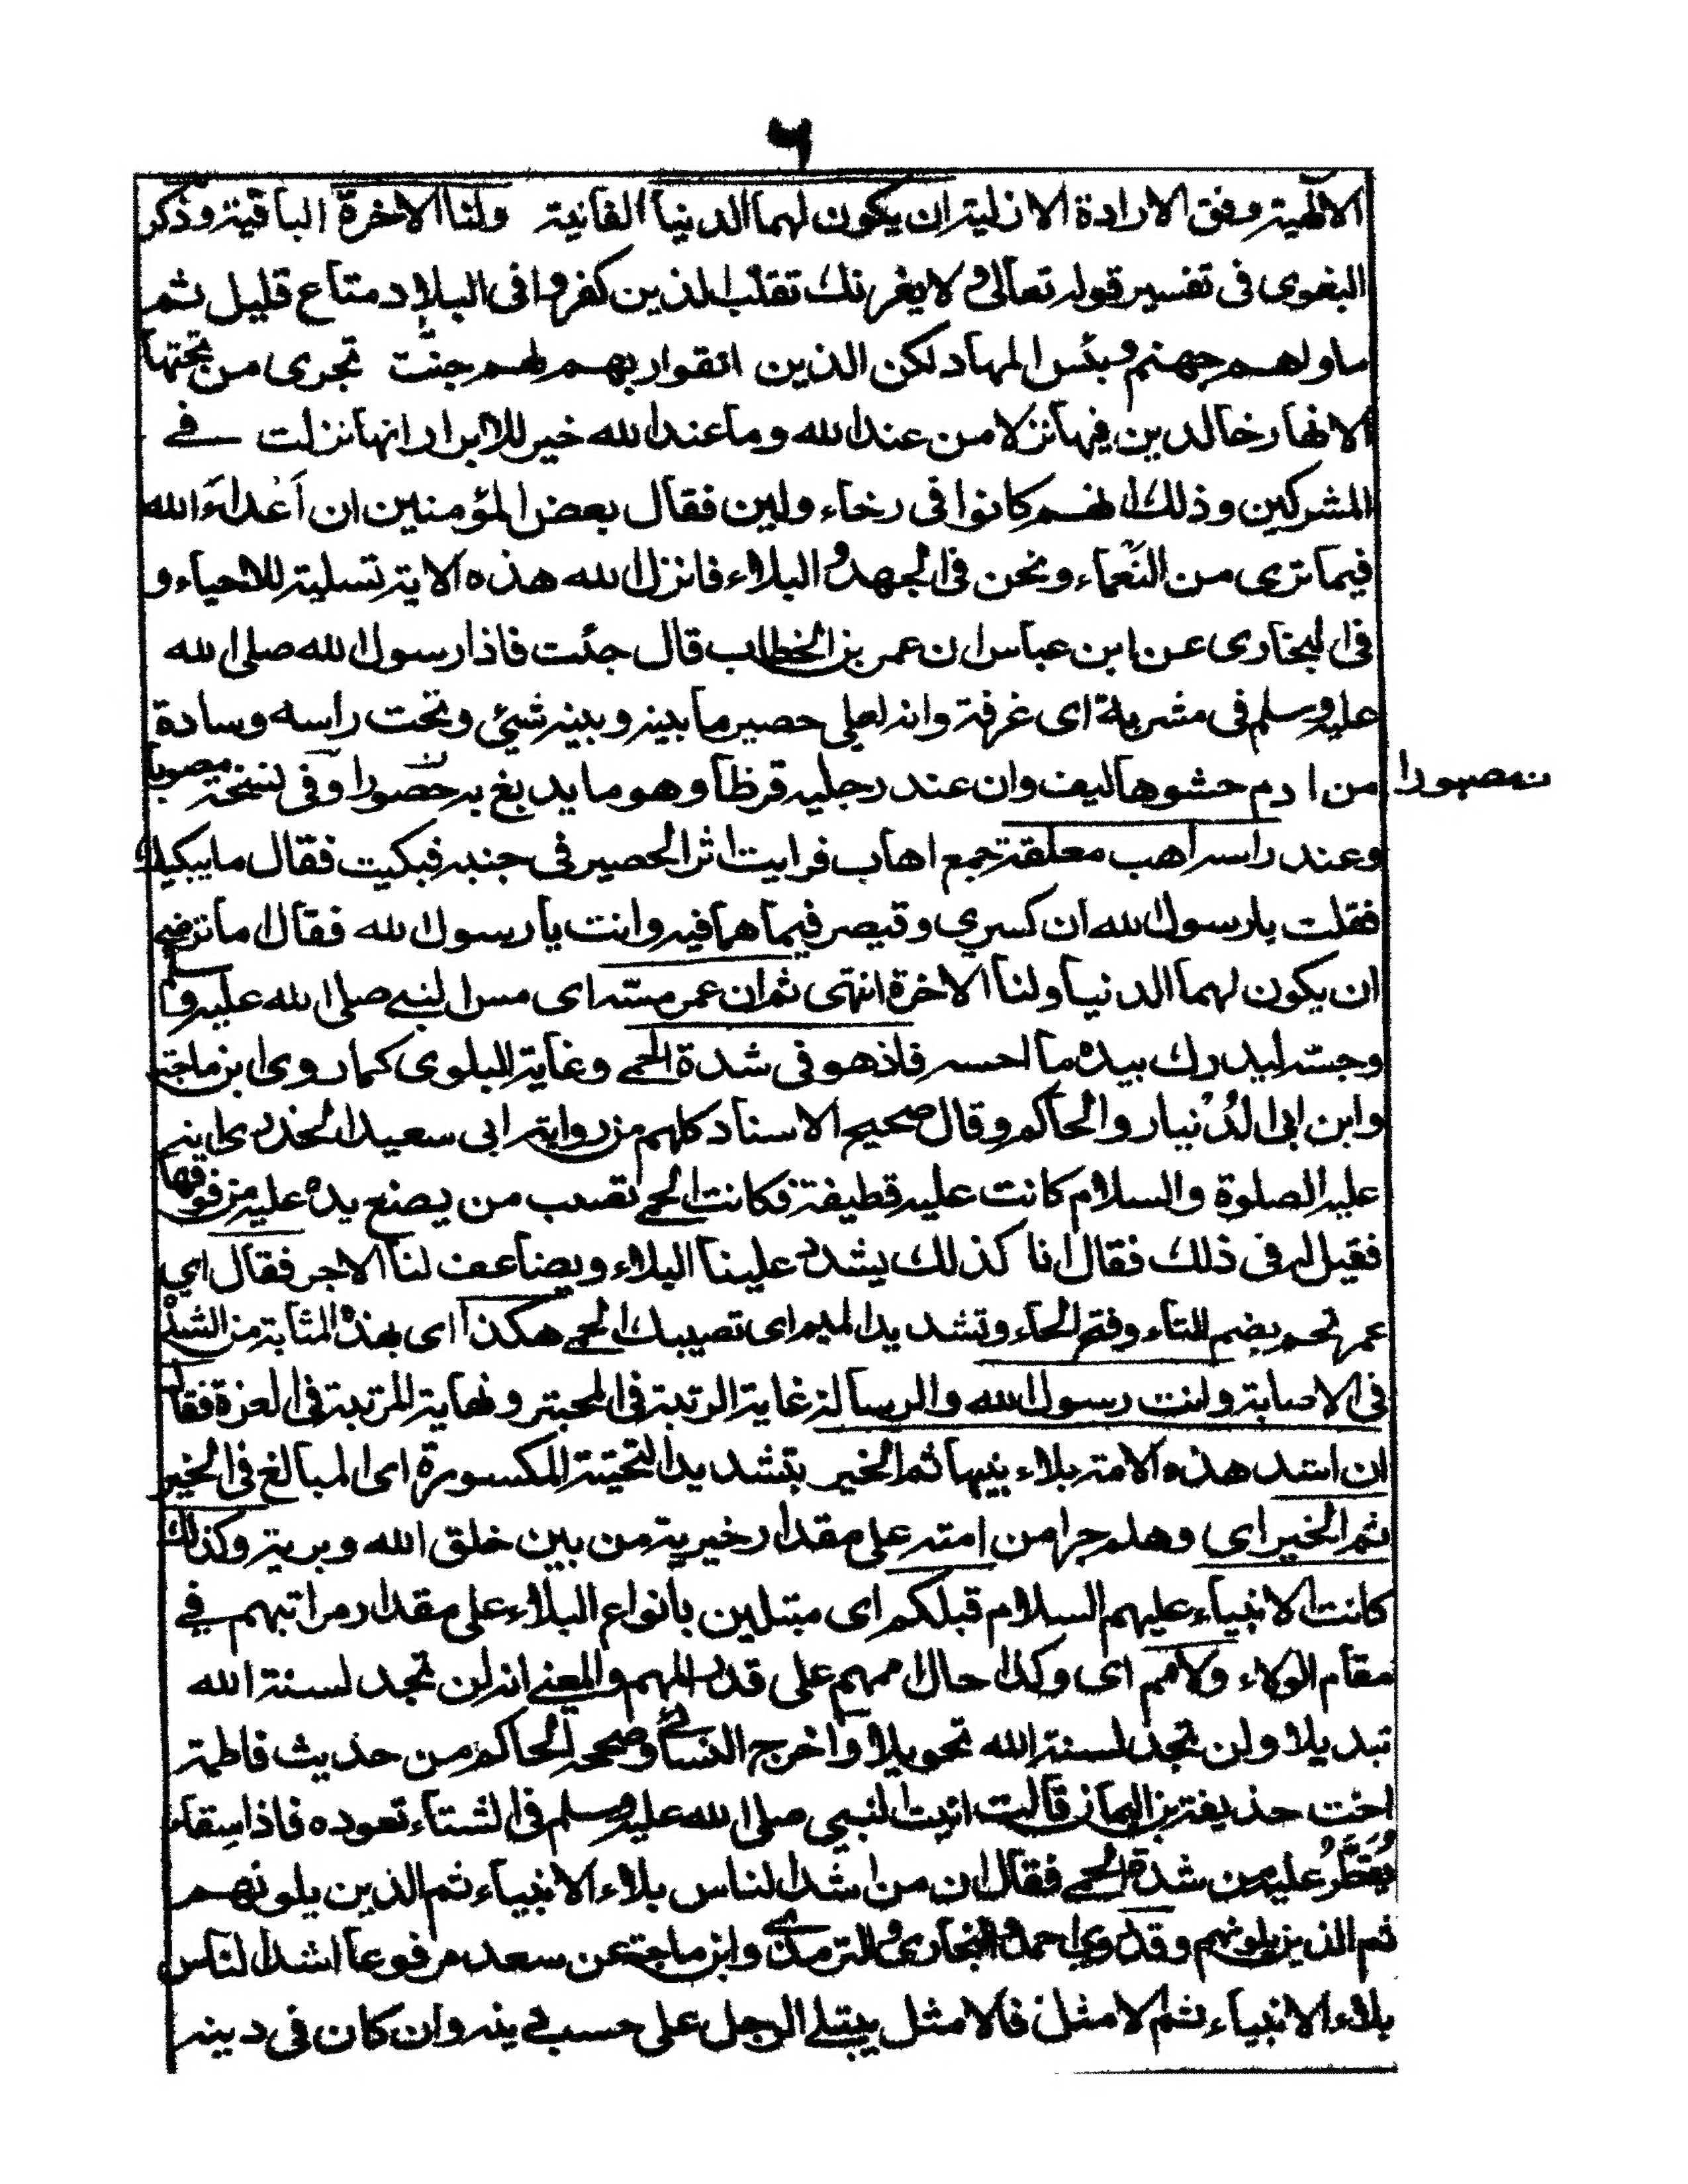 ٦
الالٰهية وفق الارادة الازلية ان يكون لهما الدنيا الفانية ولنا الاخرة الباقية وذكر
البغوى فى تفسير قوله تعالى ولا يغرنك تقلب الذين كفروا فى البلاد متاع قليل ثم
ماوٰهم جهنم وبئس المهاد لكن الذين اتقوا ربهم لهم جنّٰت تجرى من تحتها
الانهار خالدين فيها نزلا من عند الله وما عند الله خير للابرار انها نزلت فى
المشركين وذلك انهم كانوا فى رخاء ولين فقال بعض المؤمنين ان اَعْداءَ الله
فيما نرى من النَّعماء ونحن فى الجهد والبلاء فانزل الله هذه الاية تسلية للاحياء و
فى البخارى عن ابن عباس ان عمر بن الخطاب قال جئت فاذا رسول الله صلى الله
عليه وسلم فى مشربة اى غرفة وانه لعلى حصير ما بينه وبينه شيئ وتحت راسه وسادة
من ادم حشوها ليف وان عند رجليه قرظا وهو ما يدبغ به مصبورا وفى نسخة مصبوبا
ن مصبورا
وعند راسه اهب معلقة جمع اهاب فرايت اثر الحصير فى جنبه فبكيت فقال ما يبكيك
فقلت يارسول الله ان كسرى وقيصر فيما هما فيه وانت يا رسول الله فقال اما ترضى
ان يكون لهما الدنيا ولنا الاخرة انتهى ثم ان عمر مسّه اى مس النبى صلى الله عليه وسلم
وجسّه ليدرك بيده ما احسه فاذ هو فى شدة الحمى وغاية البلوى كما روى ابن ماجة
وابن ابى الدُنْيار والحاكم وقال صحيح الاسناد كلهم من رواية ابى سعيد الخدرى انه
عليه الصلوة والسلام كانت عليه قطيفة فكانت الحمى تصيب من يضع يده عليه من فوقها
فقيل له فى ذلك فقال انا كذلك يشدد علينا البلاء ويضاعف لنا الاجر فقال اي
عمر تحم بضم التاء وفتح الحاء وتشديد الميم اى تصيبك الحمى هكذا اى بهذه المثابة من الشدة
فى الاصابة وانت رسول الله والرسالة غاية الرتبة فى المحبة ونهاية المرتبة فى العزة فقال
ان اشد هذه الامة بلاء نبيها ثم الخير بتشديد التحتية المكسورة اى المبالغ فى الخير
ثم الخير اى وهلم جرا من امته على مقدار خيرية من بين خلق الله وبرية وكذلك
كانت الانبياء عليهم السلام قبلكم اى مبتلين بانواع البلاء على مقدار مراتبهم فى
مقام الولاء والامم اى وكذا حال اممهم على قدر المهم والمعنى انه لن تجد لسنة الله
تبديلا ولن تجد لسنة الله تحويلا واخرج النسائى وصححه الحاكم من حذيث فاطمة
اخت حذيفة بن اليمان قالت اتيت النبي صلى الله عليه وسلم فى الشتاء تعوده فاذا سقاء
يُقَطَّرُ عليه من شدة الحمى فقال ان من اشد الناس بلاء الانبياء ثم الذين يلونهم
ثم الذين يلونهم وقد روى احمد والبخارى والترمذى وابن ماجة عن سعد مرفوعا اشد الناس
بلاء الانبياء ثم الامثل فالامثل يبتلى الرجل على حسب دينه وان كان فى دينه